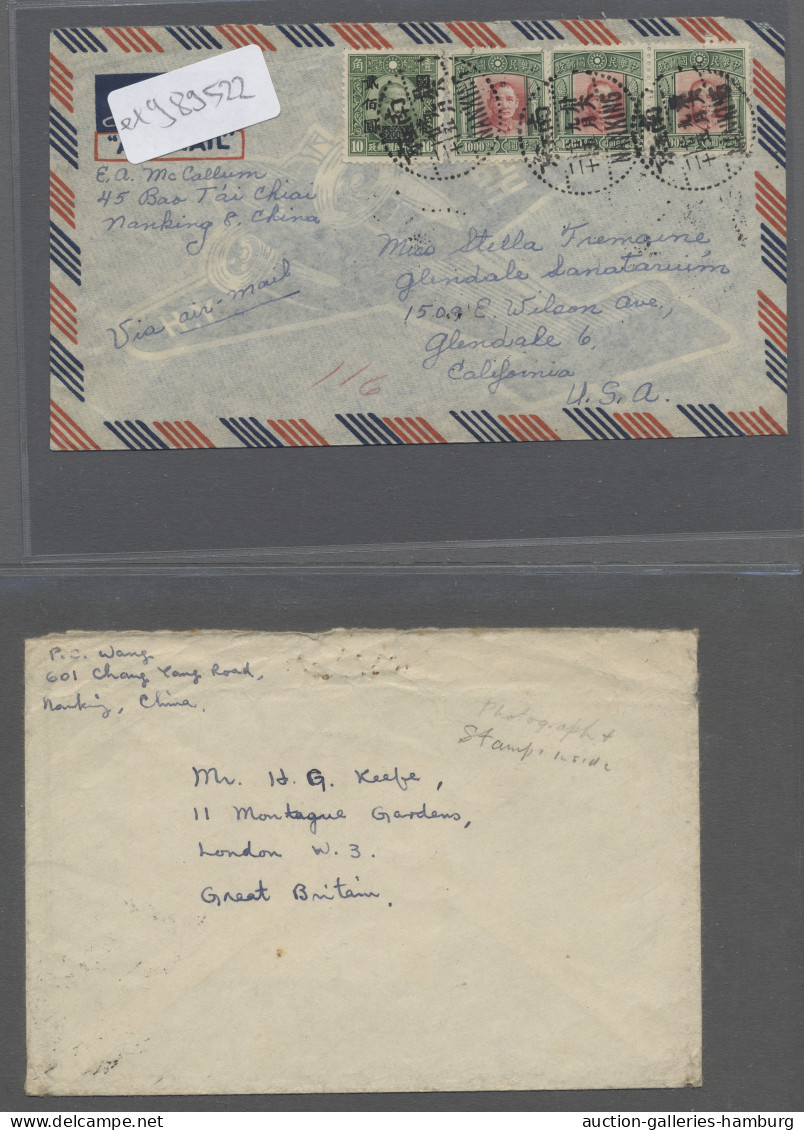 ex 989522
E.A. McCallum
45 Bao Tái Chiai
Nanking 8, China
Via air-mail
116
Miss Stella Tremaine
Glendale Sanatarium
1509 E. Wilson Ave.,
Glendale 6,
California
U.S.A.
角 壹
10
1000
NANKING
NANKING
P.C. Wang
601 Chang Yang Road,
Nanking, China.
Photograph +
Stamps inside
Mr. H. G. Keefe,
11 Montague Gardens,
London W. 3.
Great Britain.
auction-galleries-hamburg